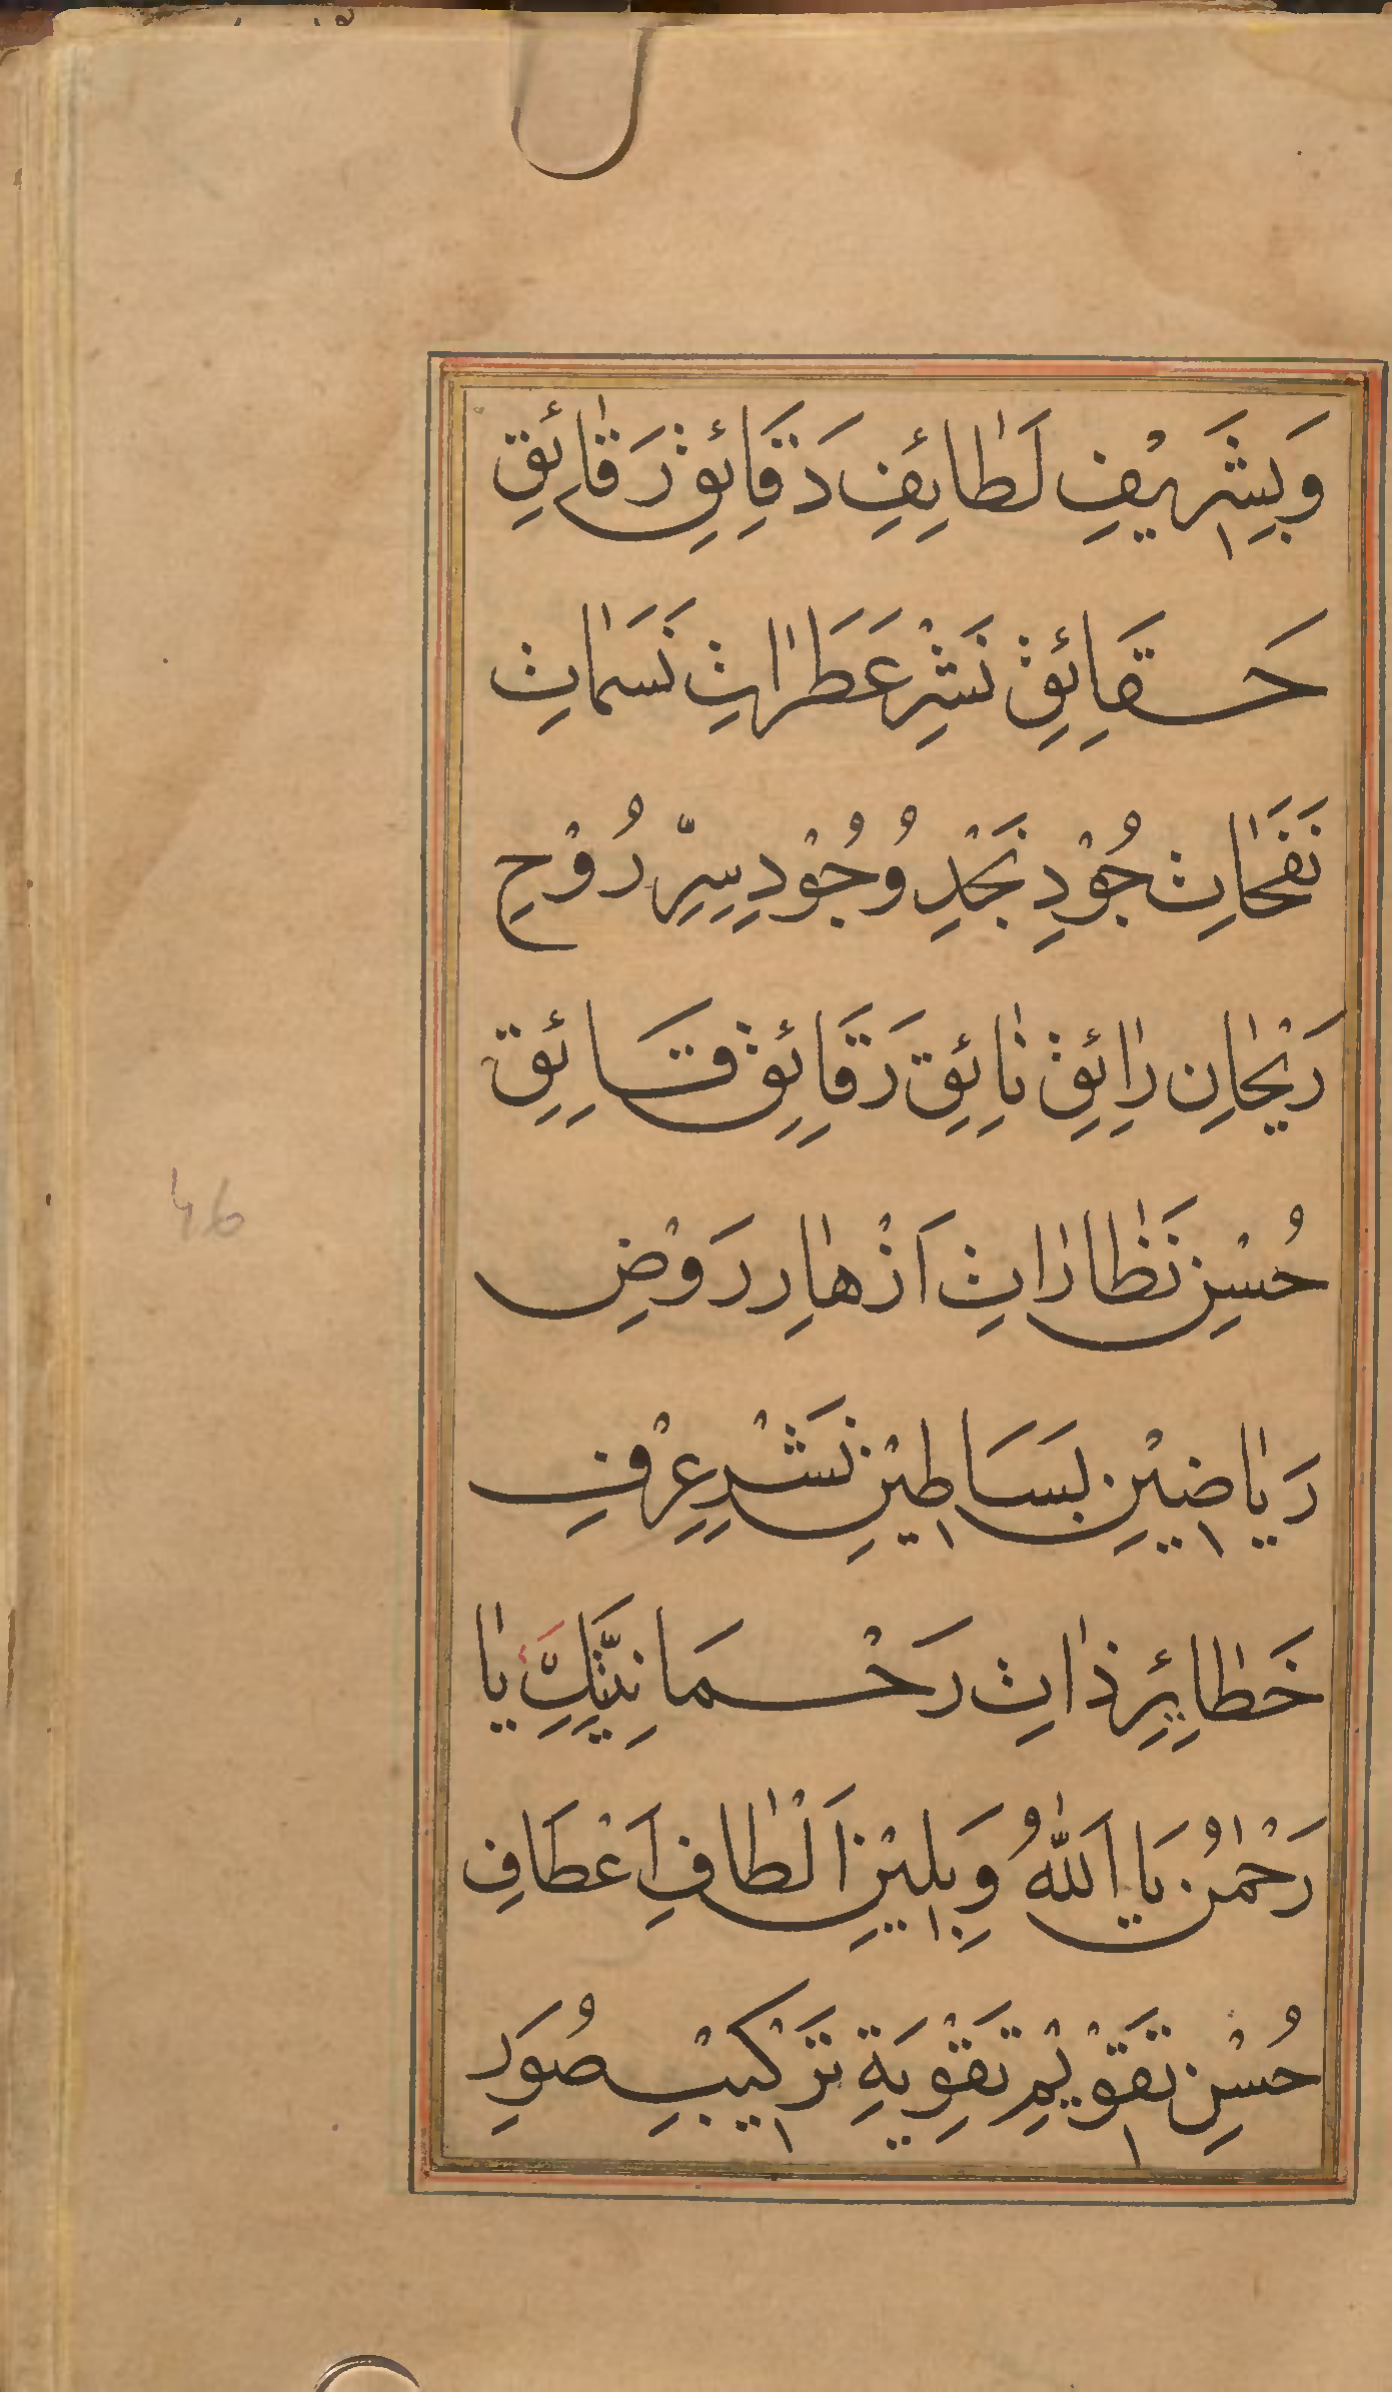 وَبِشَرِيْفِ لَطَائِفِ دَقَائِقِ رَقَائِقِ
حَقَائِقِ نَشْرِ عَطَرَاتِ نَسَمَاتِ
نَفَحَاتِ جُوْدِ نَجْدِ وُجُوْدِ سِرِّ رُوْحِ
رَيْحَانِ رَائِقِ فَائِقِ رَقَائِقِ
حُسْنِ نَظَارَاتِ اَزْهَارِ رَوْضِ
رَيَاضِيْنِ بَسَاطِيْنِ نَشْرِ عِرْفِ
خَطَائِرِ ذَاتِ رَحْمَانِيَّتِكَ يَا
رَحْمٰنُ يَا اَللّٰهُ وَبِلِيْنِ اَلْطَافِ اَعْطَافِ
حُسْنِ تَقْوِيْمِ تَقْوِيَةِ تَرْكِيْبِ صُوَرِ
46